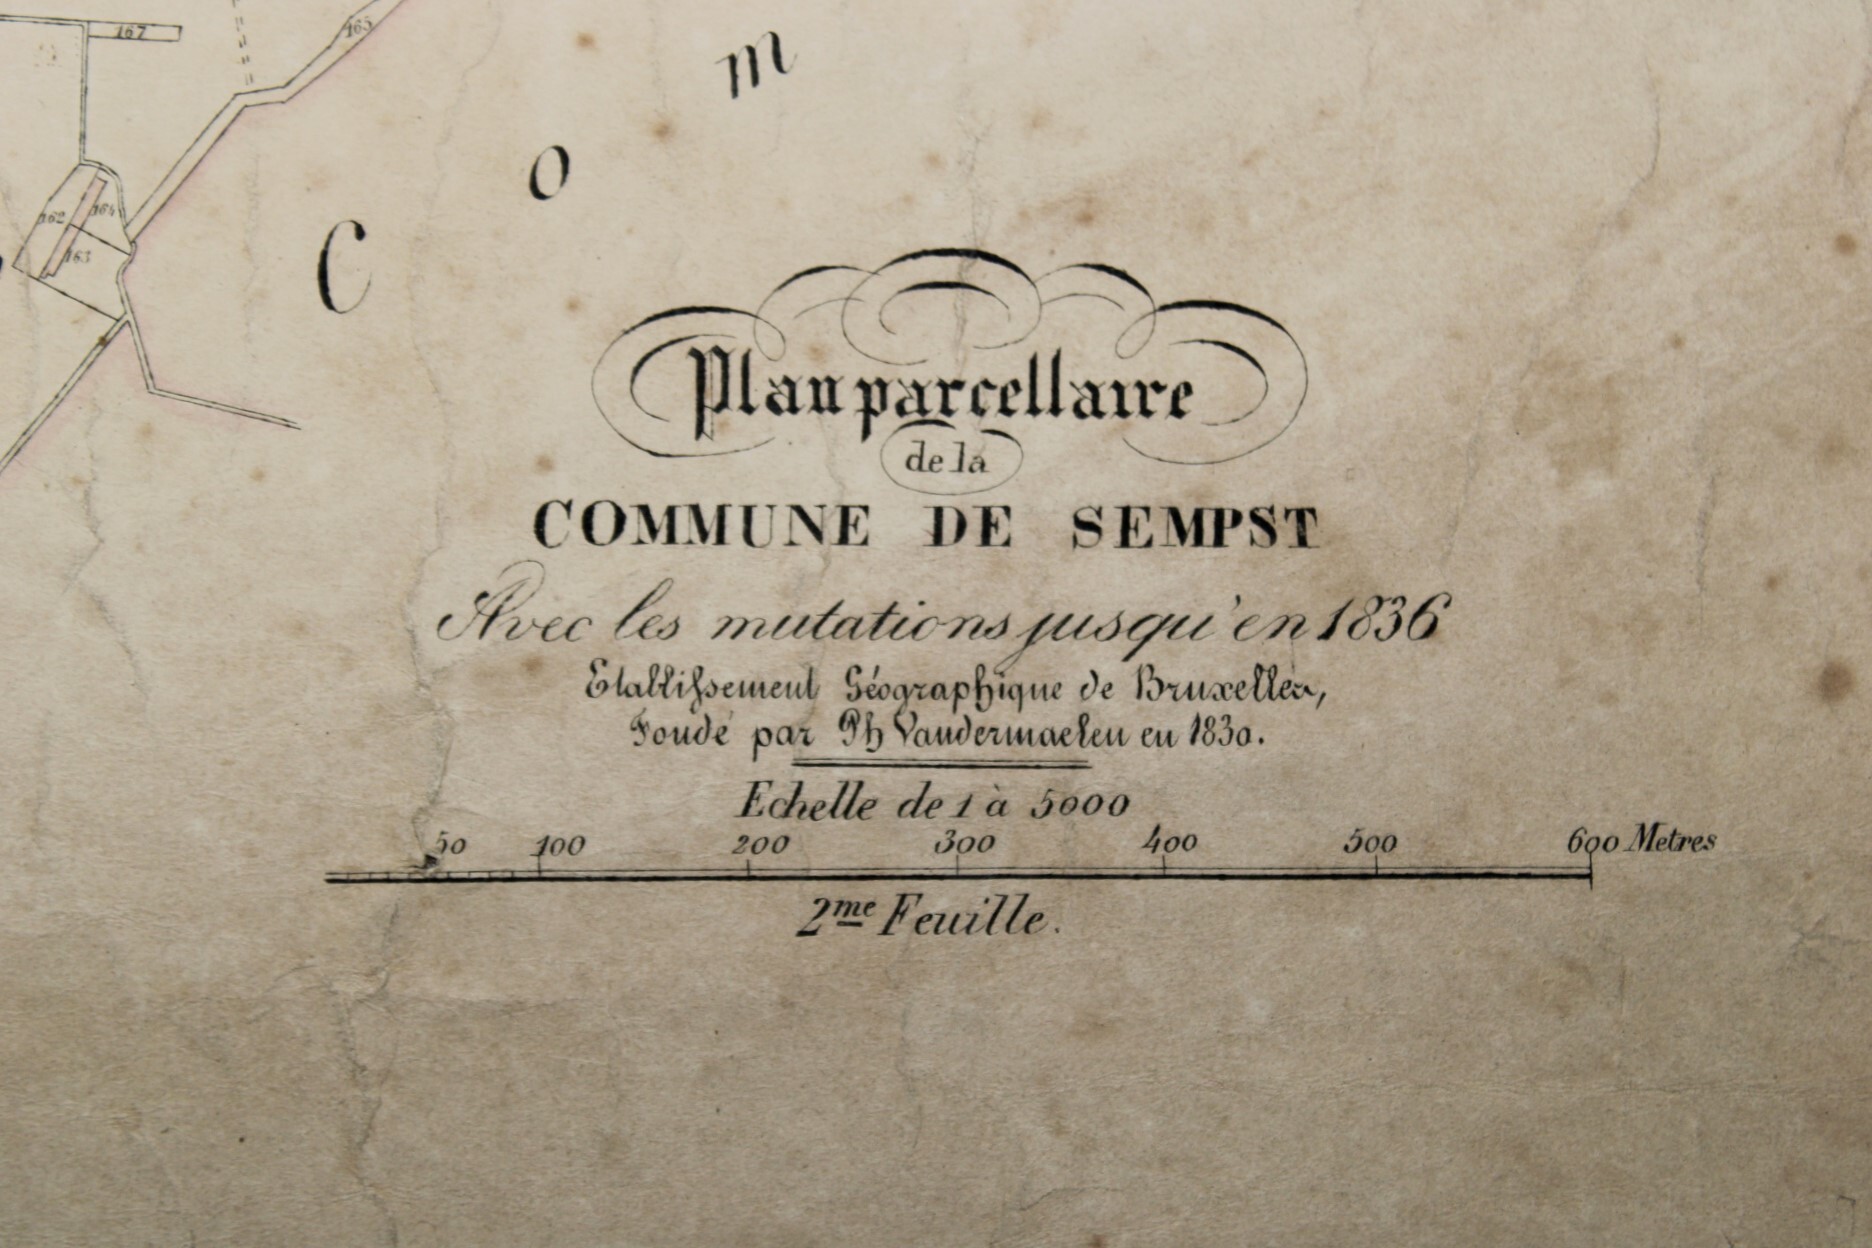 167
165
m
o
162
164
163
C
Plan parcellaire
de la
COMMUNE DE SEMPST
Avec les mutations jusqu'en 1836
Etablissement Géographique de Bruxelles,
Fondé par Ph Vandermaelen en 1830.
Echelle de 1 à 5000
50 100 200 300 400 500 600 Metres
2me Feuille.